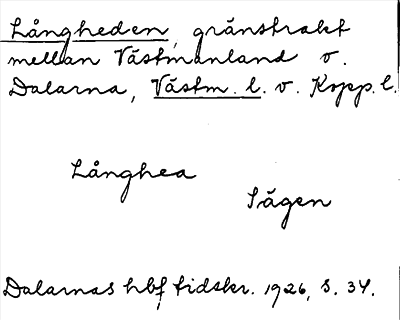 Långheden, gränstrakt
mellan Västmanland o.
Dalarna, Västm. l. o. Kopp. l.
Långhea
Sägen
Dalarnas hbf tidskr. 1926, s. 34.